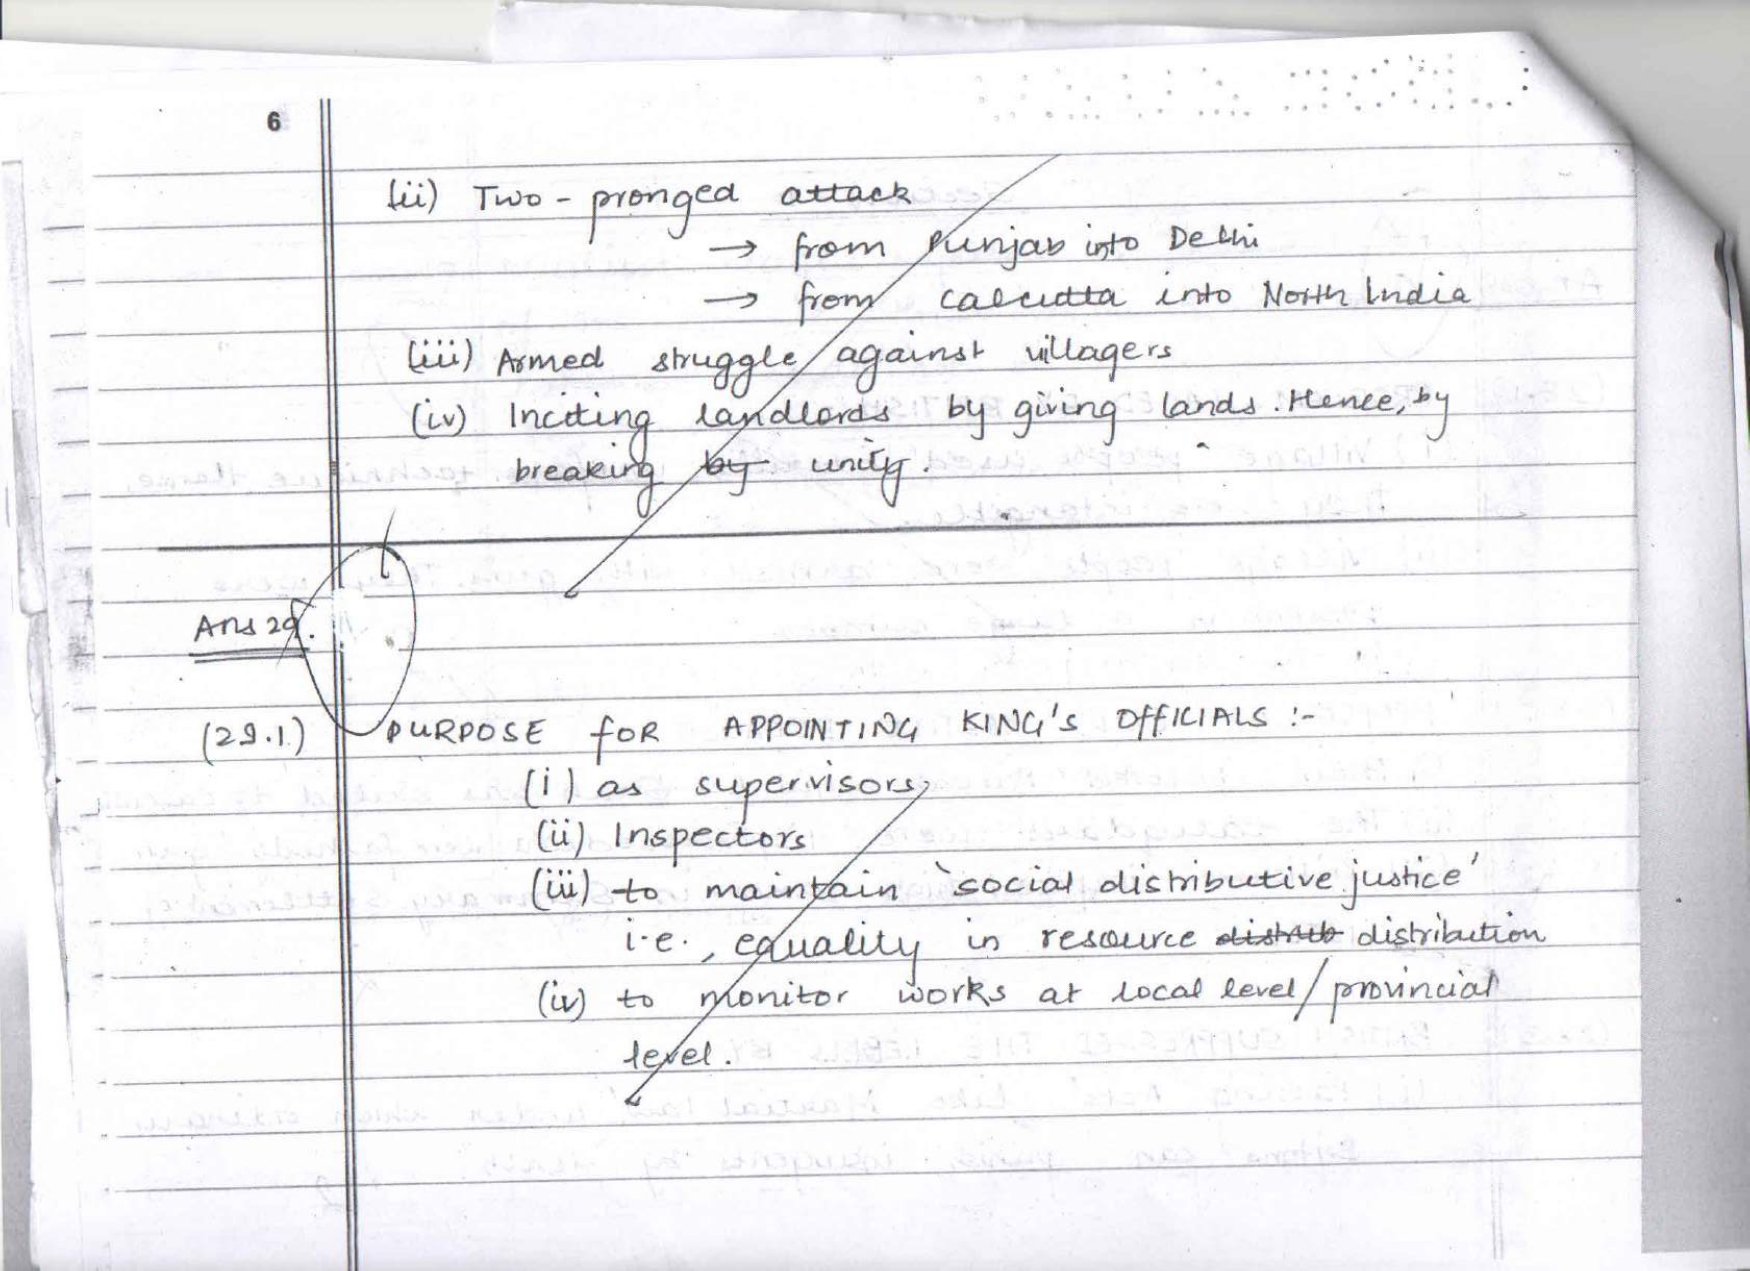 6
(ii) Two-pronged attack
→ from Punjab into Delhi
→ from Calcutta into North India
(iii) Armed struggle against villagers
(iv) Inciting landlords by giving lands. Hence, by
breaking by unity.
Ans 29.
(29.1) PURPOSE FOR APPOINTING KING'S OFFICIALS :-
(i) as supervisors
(ii) Inspectors
(iii) to maintain 'social distributive justice'
i.e., equality in resource distrib distribution
(iv) to monitor works at local level/provincial
level.